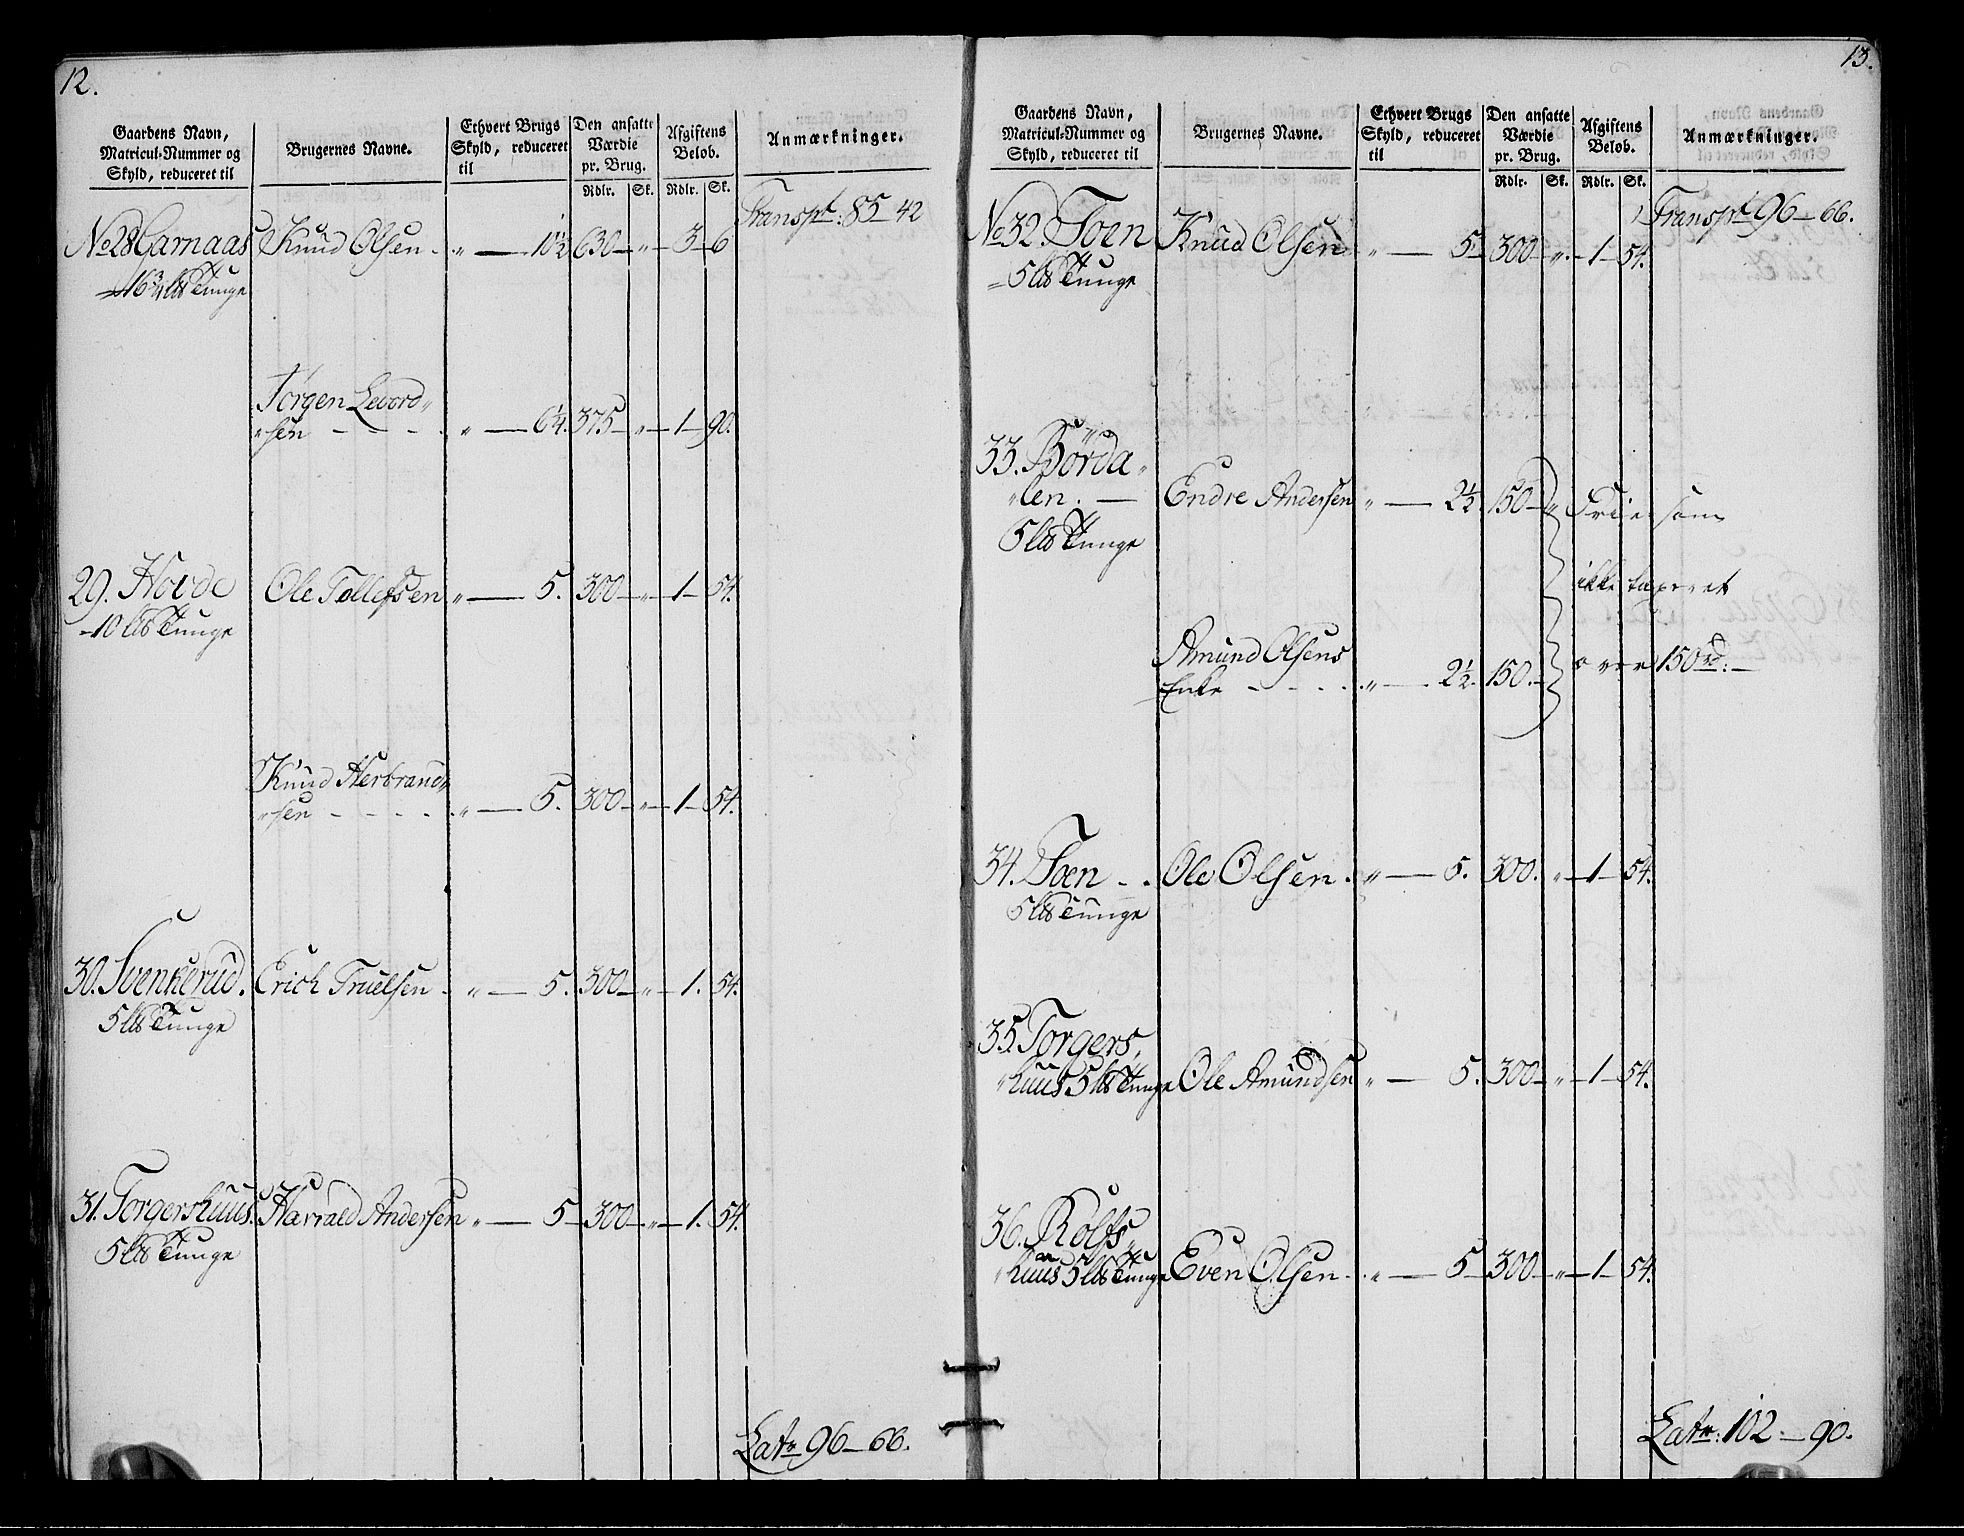 12.
Gaardens Navn,
Matricul-Nummer og
Skyld, reduceret til
Brugernes Navne.
Ethvert Brugs
Skyld, reduceret
til
Den ansatte
Værdie
pr. Brug.
Rdlr. Sk.
Afgiftens
Beløb.
Rdlr. Sk.
Anmærkninger.
Transpt: 85 - 42
No 28 Garnaas Knud Olsen . „ — 10½ 630 - „ - 3 - 6
16¾ Tunge
Jørgen Levord„
„sen - - - - „ — 6¼. 375 - „ - 1 - 90.
29. Hovde Ole Tollefsen „ — 5. 300 - „ - 1 - 54.
10 Tunge
Knud Herbrand„
„sen - - - - „ — 5. 300 - „ - 1 - 54.
30. Svenkerud. Erich Truelsen - „ — 5. 300 - „ - 1. 54.
5 Tunge
31. Torgershuus. Harrald Andersen „ — 5 - 300 - „ - 1. 54.
5 Tunge
Latr 96 - 66.
13.
Gaardens Navn,
Matricul-Nummer og
Skyld, reduceret til
Brugernes Navne.
Ethvert Brugs
Skyld, reduceret
til
Den ansatte
Værdie
pr. Brug.
Rdlr. Sk.
Afgiftens
Beløb.
Rdlr. Sk.
Anmærkninger.
Transpt 96 - 66.
No 32. Toen Knud Olsen „ — 5. 300 - „ - 1 - 54.
5 Tunge
33. Børda„
„len. — Endre Andersen „ — 2½. 150 - „ Frie som
5 Tunge
ikke taxeret
Amund Olsens
Enke - - - - „ — 2½. 150. - over 150 rd. -
34. Toen - . Ole Olsen . „ — 5. 300. „ - 1 - 54.
5 Tunge
35. Torgers„
„huus 5 Tunge Ole Amundsen „ — 5. 300 - „ - 1 - 54.
36. Rolfs„
„huus 5 Tunge Even Olsen - . „ — 5 - 300 - „ - 1 - 54.
Latr: 102. - 90.